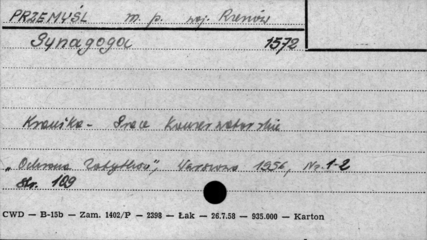 PRZEMYŚL m. p. woj. Rzeszów
Synagoga 1572
Kronika - Prace Konserwatorskie
"Ochrona Zabytków", Warszawa 1956, Nr. 1-2
Str. 109
CWD — B-15b — Zam. 1402/P — 2298 — Łak — 26.7.58 — 935.000 — Karton